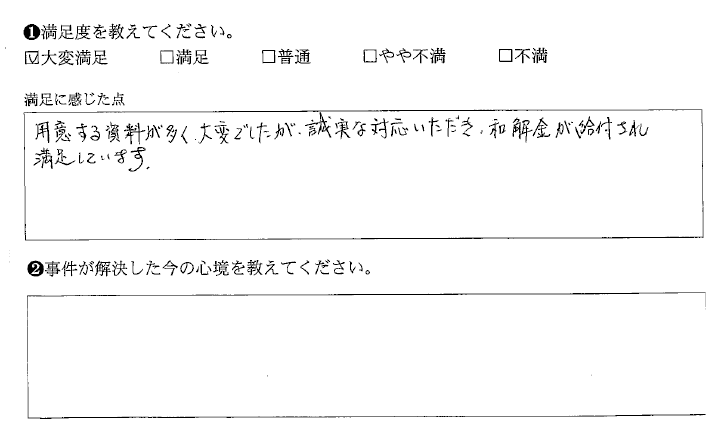 ❶満足度を教えてください。
☑大変満足 □満足 □普通 □やや不満 □不満
満足に感じた点
用意する資料が多く、大変でしたが、誠実な対応いただき、和解金が給付され
満足しています。
❷事件が解決した今の心境を教えてください。